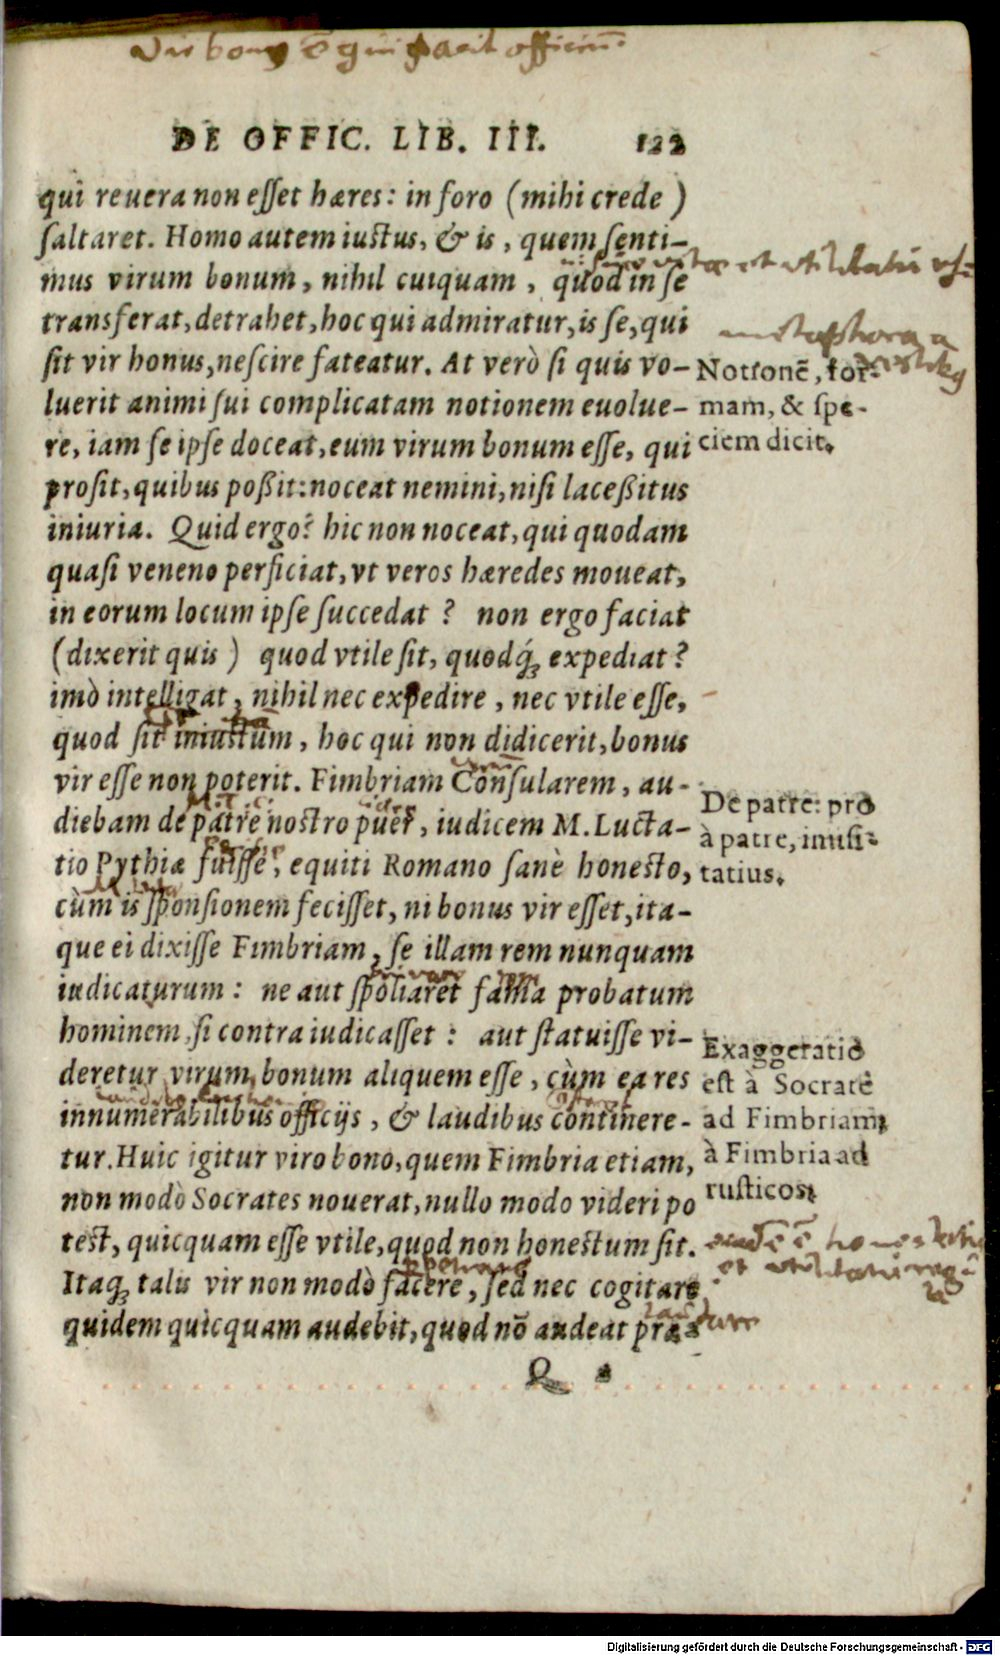 Vir bonus ē qui facit officiū.
DE OFFIC. LIB. III. 122
qui reuera non esset hæres: in foro (mihi crede )
saltaret. Homo autem iustus, & is, quem senti-
mus virum bonum, nihil cuiquam, quod in se
et vtilitatū
transferat, detrahet, hoc qui admiratur, is se, qui
metaphora a
sit vir honus, nescire fateatur. At verò si quis vo-
luerit animi sui complicatam notionem euolue-
re, iam se ipse doceat, eum virum bonum esse, qui
Notionē, for-
mam, & spe-
ciem dicit.
prosit, quibus poßit: noceat nemini, nisi laceßitus
iniuria. Quid ergo? hic non noceat, qui quodam
quasi veneno perficiat, vt veros hæredes moueat,
in eorum locum ipse succedat ? non ergo faciat
(dixerit quis ) quod vtile sit, quodq́; expediat ?
imò intelligat, nihil nec expedire, nec vtile esse,
quod sit iniustum, hoc qui non didicerit, bonus
vir esse non poterit. Fimbriam Consularem, au-
diebam de patre nostro puer, iudicem M. Lucta-
tio Pythiæ fuisse, equiti Romano sanè honesto,
De patre: pro
à patre, inusi-
tatius.
cùm is sponsionem fecisset, ni bonus vir esset, ita-
que ei dixisse Fimbriam, se illam rem nunquam
iudicaturum : ne aut spoliaret fama probatum
hominem, si contra iudicasset : aut statuisse vi-
deretur virum bonum aliquem esse, cùm ea res
innumerabilibus officijs, & laudibus continere-
tur. Huic igitur viro bono, quem Fimbria etiam,
non modò Socrates nouerat, nullo modo videri po
Exaggeratio
est à Socrate
ad Fimbriam,
à Fimbria ad
rusticos.
test, quicquam esse vtile, quod non honestum sit.
eadē ē honestatis
et vtilitatis regu
la
Itaq; talis vir non modò facere, sed nec cogitare
quidem quicquam audebit, quod nō audeat præ-
Q 2
Digitalisierung gefördert durch die Deutsche Forschungsgemeinschaft - DFG